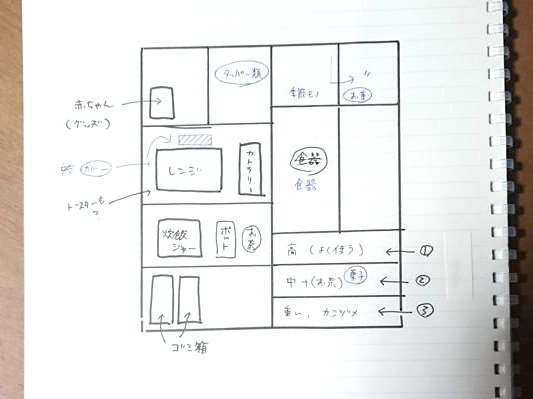 タッパー類
季節モノ
〃
お茶
赤ちゃん
(グッズ)
食器
食器
カバー
レンジ
カトラリー
トースターも
?
炊飯
ジャー
ポット
お茶
高 (よく使う)
①
中 + (お茶) 菓子
②
重い、カンヅメ
③
ゴミ箱